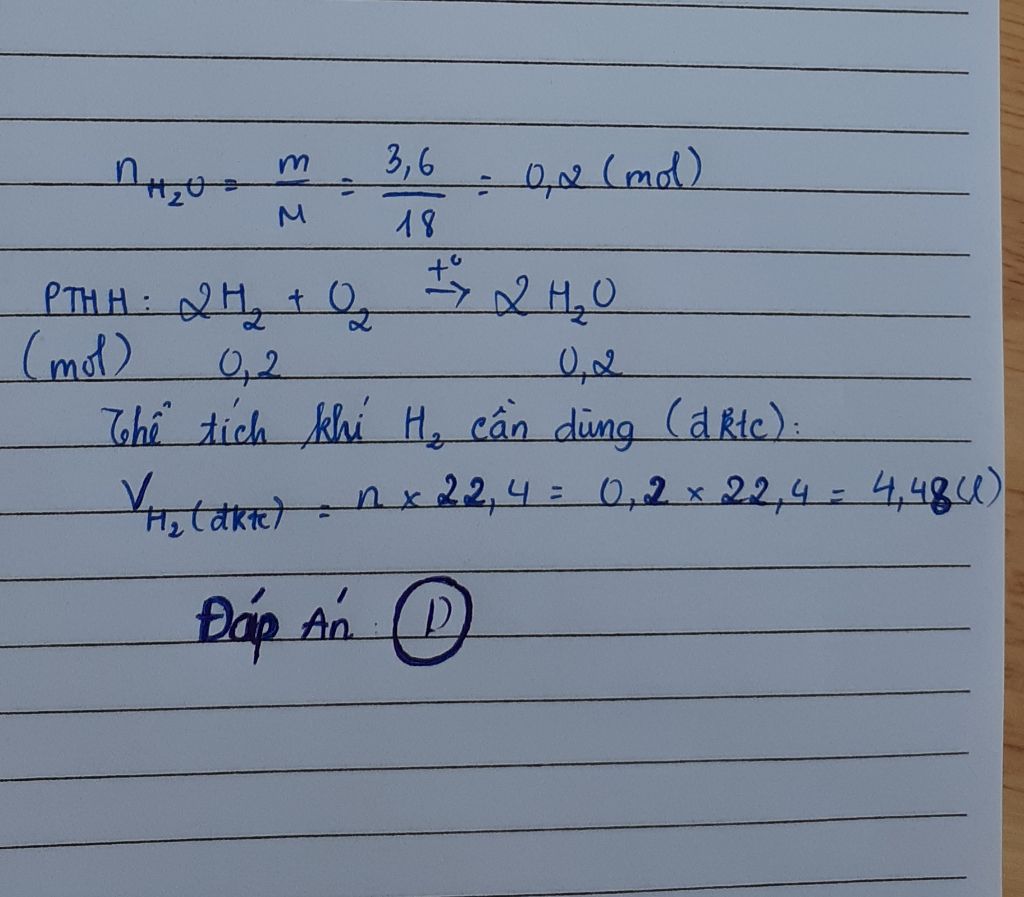 n H₂O = m/M = 3,6/18 = 0,2 (mol)
PTHH: 2H₂ + O₂ t° → 2H₂O
(mol) 0,2 0,2
Thể tích khí H₂ cần dùng (đktc):
V H₂(đktc) = n x 22,4 = 0,2 x 22,4 = 4,48(l)
Đáp Án: D